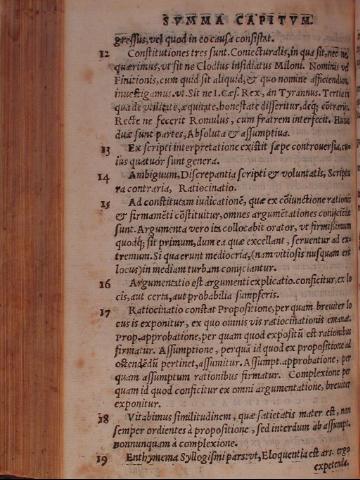 SVMMA CAPITVM.
gressus, vel quod in eo causa consistat.
12 Constitutiones tres sunt. Coniecturalis, in qua sit, nec ne,
quærimus, vt sit ne Clodius insidiatus Miloni. Nominis vel
Finitionis, cum quid sit aliquid, & quo nomine afficiendum
inuestigamus. vt. Sit ne I. Cæs. Rex, an Tyrannus. Tertia in
qua de vtilitate, æquitate, honestate disseritur, deq; cōtrarijs.
Recte ne fecerit Romulus, cum fratrem interfecit. Huius
duæ sunt partes, Absoluta & assumptiua.
13 Ex scripti interpretatione existit sæpe controuersia, cu
ius quatuor sunt genera.
14 Ambiguum, Discrepantia scripti & voluntatis, Scripta
ra contraria, Ratiocinatio.
15 Ad constitutam iudicationē, quæ ex cōiunctione rationis
& firmamēti cōstituitur, omnes argumētationes conijciēdæ
sunt. Argumenta vero ita collocabit orator, vt firmissimum
quodq; sit primum, dum ea quæ excellant, seruentur ad ex-
tremum. Si qua erunt mediocria, (nam vitiosis nusquam est
locus) in mediam turbam conijciantur.
16 Argumentatio est argumenti explicatio. conficitur, ex lo
cis, aut certa, aut probabilia sumpseris.
17 Ratiocinatio constat Propositione, per quam breuiter lo
cus is exponitur, ex quo omnis vis ratiocinationis emanat.
Prop. approbatione, per quam quod expositū est rationibus
firmatur. Assumptione, per quā id quod ex propositione ad
ostendēdū pertinet, assumitur. Assumpt. approbatione, per
quam assumptum rationibus firmatur. Complexione per
quam id quod conficitur ex omni argumentatione, breuiter
exponitur.
18 Vitabimus similitudinem, quæ satietatis mater est, non
semper ordientes à propositione, sed interdum ab assumpt.
nonnunquam à complexione.
19 Enthymema Syllogismi pars: vt, Eloquentia est ars. ergo
expetenda.